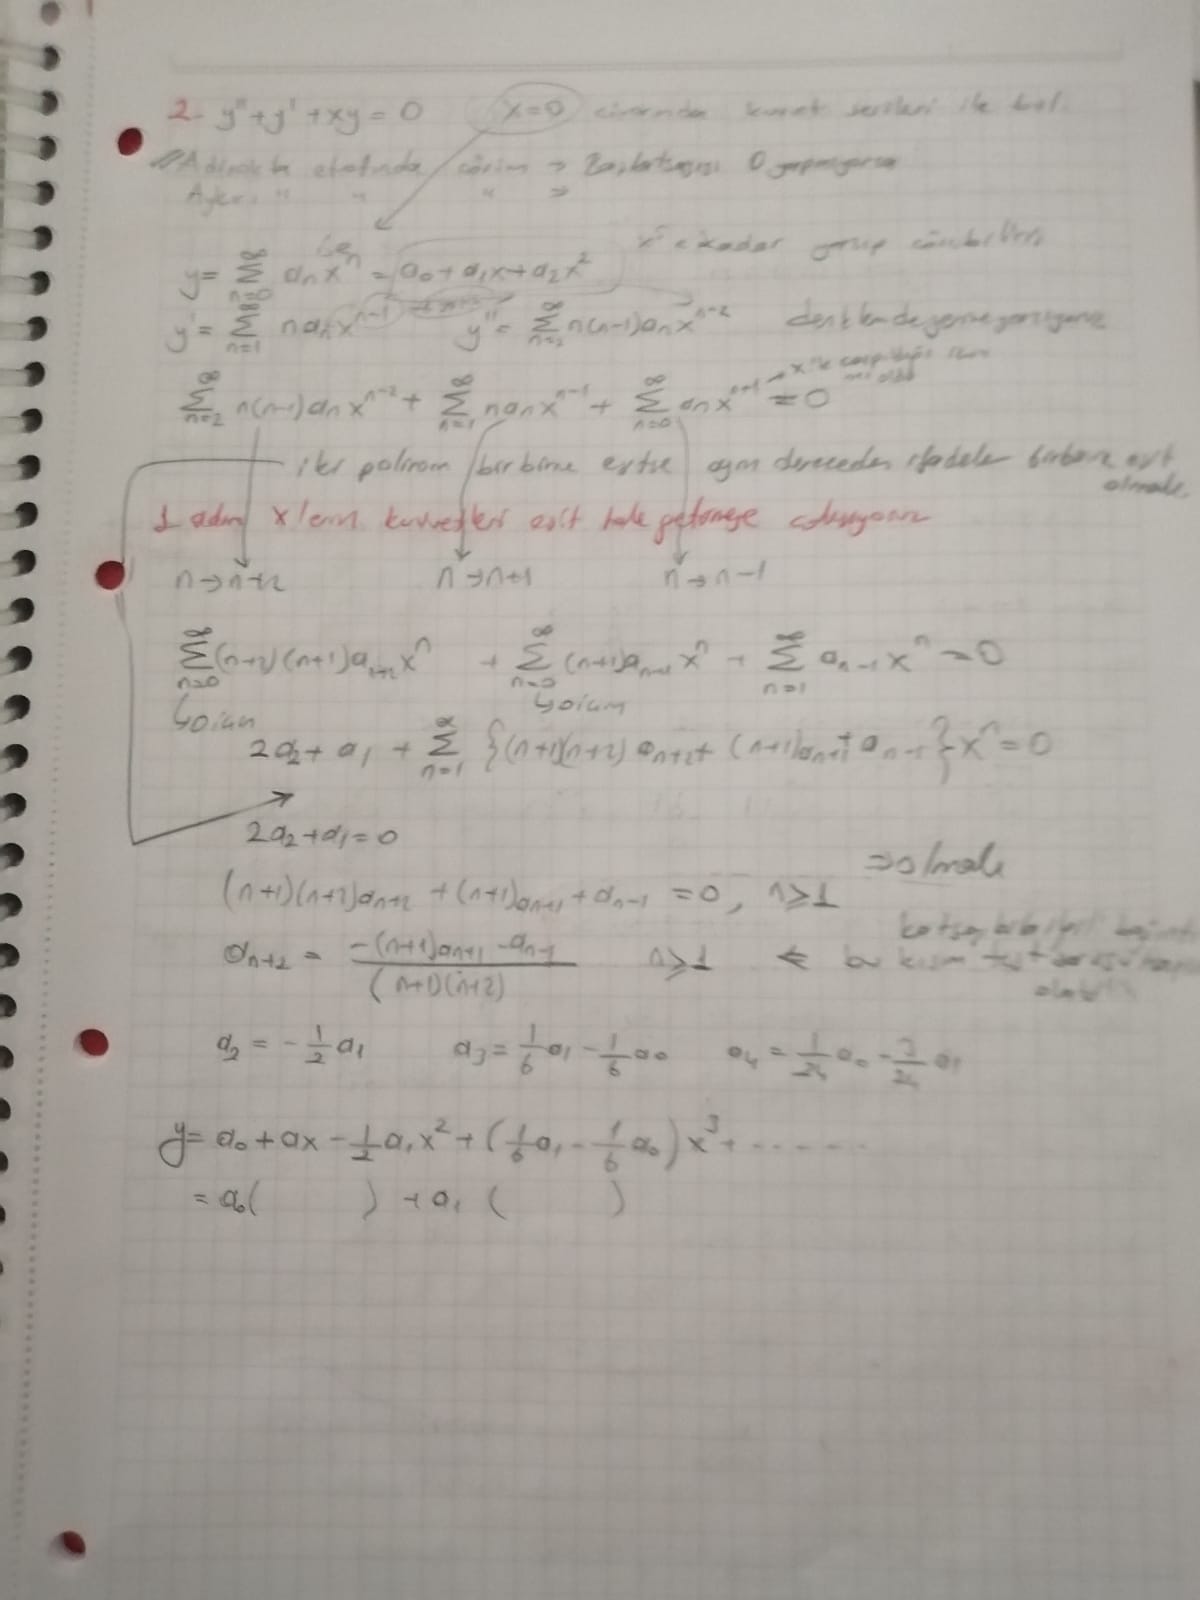 2- y'' + y' + xy = 0   x=0 civarında kuvvet serileri ile bul.
Adi nokta etrafında çözüm → Başkatsayısı 0 yapmıyorsa
Aykırı " " " ⇒
y = ∑_{n=0}^{∞} a_n x^n = a_0 + a_1x + a_2x^2   x^5 e kadar
y' = ∑_{n=1}^{∞} n a_n x^{n-1}   y'' = ∑_{n=2}^{∞} n(n-1)a_n x^{n-2}   denklemde yerine yazıyoruz
∑_{n=2}^{∞} n(n-1)a_n x^{n-2} + ∑_{n=1}^{∞} n a_n x^{n-1} + ∑_{n=0}^{∞} a_n x^{n+1} = 0 → x ile
iki polinom birbirine eşitse aynı dereceden ifadeler birbirine eşit
olmalı.
1 adım x'lerin kuvvetleri eşit hale getirmeye çalışıyoruz
n→n+2   n→n+1   n→n-1
∑_{n=0}^{∞} (n+2)(n+1)a_{n+2} x^n + ∑_{n=0}^{∞} (n+1)a_{n+1} x^n + ∑_{n=1}^{∞} a_{n-1} x^n = 0
2a_2 + a_1 + ∑_{n=1}^{∞} {(n+1)(n+2) a_{n+2} + (n+1)a_{n+1} + a_{n-1}} x^n = 0
2a_2 + a_1 = 0
=0 olmalı
(n+1)(n+2)a_{n+2} + (n+1)a_{n+1} + a_{n-1} = 0, n≥1
a_{n+2} = \frac{-(n+1)a_{n+1} - a_{n-1}}{(n+1)(n+2)}   n≥1   ← bu kısım test
a_2 = -\frac{1}{2}a_1   a_3 = \frac{1}{6}a_1 - \frac{1}{6}a_0   a_4 = \frac{1}{24}a_0 - \frac{3}{24}a_1
y = a_0 + ax - \frac{1}{2}a_1x^2 + (\frac{1}{6}a_1 - \frac{1}{6}a_0)x^3 + ......
= a_0(   ) + a_1(   )